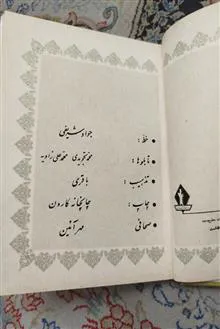 خط : جواد شریفی
تابلوها : محمد تجویدی محمد علی زاویه
تذهیب : باقری
چاپ : چاپخانه کارون
صحافی : مهرآئین